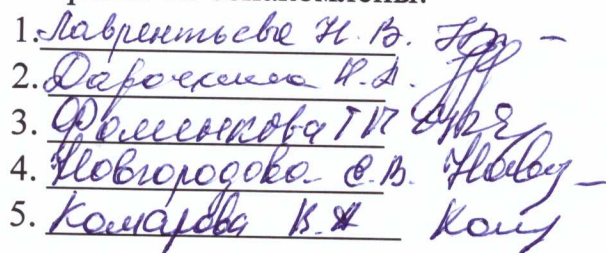 ознакомлены:
1. Лаврентьева Н.В.
2. Дарочкина Н.А.
3. Фоменкова Т П
4. Новгородова С.В.
5. Комарова В.А